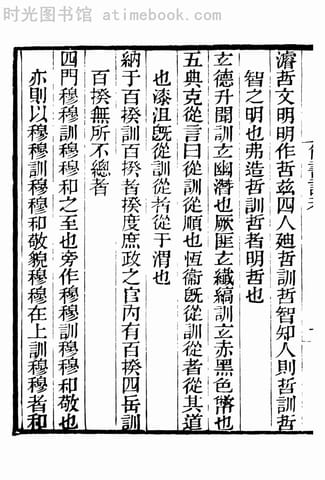 时光图书馆 - atimebook.com
濬哲文明明作哲兹四人廸哲訓哲智知人則哲訓哲
智之明也弗造哲訓哲者明哲也
玄德升聞訓玄幽潛也厥匪玄纖縞訓玄赤黑色幣也
五典克從言曰從訓從順也恆衞旣從訓從者從其道
也漆沮旣從訓從者從于渭也
納于百揆訓百揆者揆度庶政之官內有百揆四岳訓
百揆無所不總者
四門穆穆訓穆穆和之至也旁作穆穆訓穆穆和敬也
亦則以穆穆訓穆穆和敬貌穆穆在上訓穆穆者和